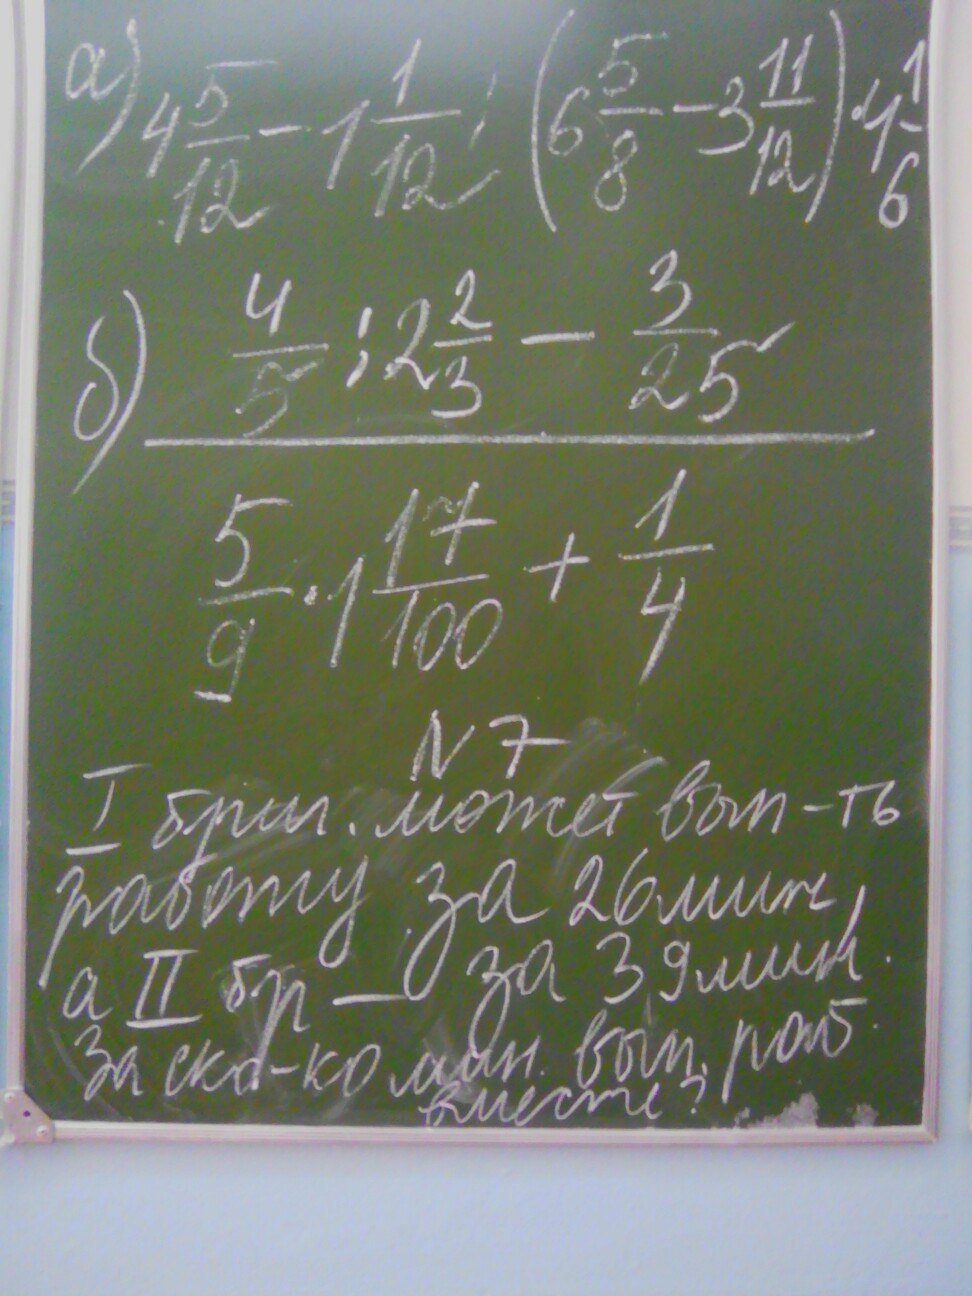 а) 4 5/12 - 1 1/12 : (6 5/8 - 3 11/12) · 4 1/6
б) 4/5 : 2 2/3 - 3/25
5/9 · 1 17/100 + 1/4
N 7
I бриг. может вып-ть
работу за 26 мин,
а II бр – за 39 мин.
За ско-ко мин. вып. раб.
вместе?